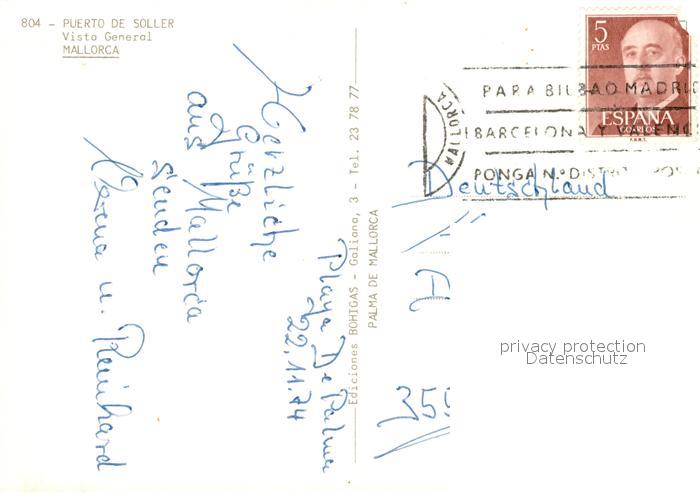 804 - PUERTO DE SOLLER
Vista General
MALLORCA
Playa De Palma
22.11.74
Herzliche
Grüße
aus Mallorca
senden
Verena u. Reinhard
Ediciones BOHIGAS - Galiana, 3 - Tel. 23 78 77
PALMA DE MALLORCA
5
PTAS
ESPAÑA
CORREOS
MALLORCA
PARA BILBAO MADRID
BARCELONA Y
PONGA N.º
Deutschland
A
35
privacy protection
Datenschutz